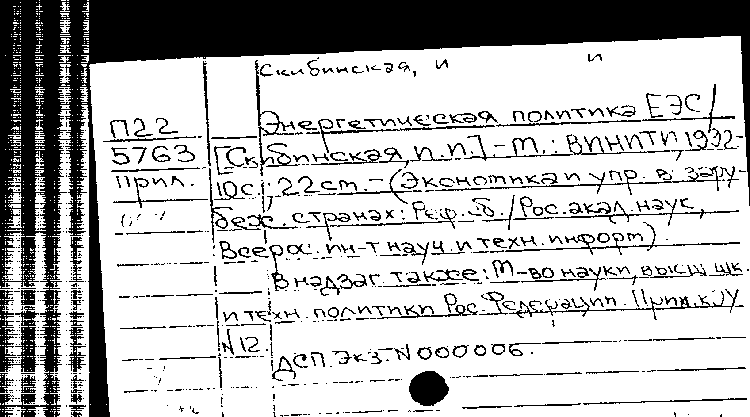 Скибинская, и и
Энергетическая политика ЕЭС/
П22
5763
Прил.
[Скибинская, И.И.].-М.: ВИНИТИ, 1992-
10с; 22см.-(Экономика и упр. в зару-
беж. странах: Реф. сб./Рос. акад. наук,
Всерос. ин-т науч. и техн. информ).
В надзаг. также: М-во науки, высш. шк.
и техн. политики Рос. Федерации. Прил. к
N12
ДСП. Экз. N000006.